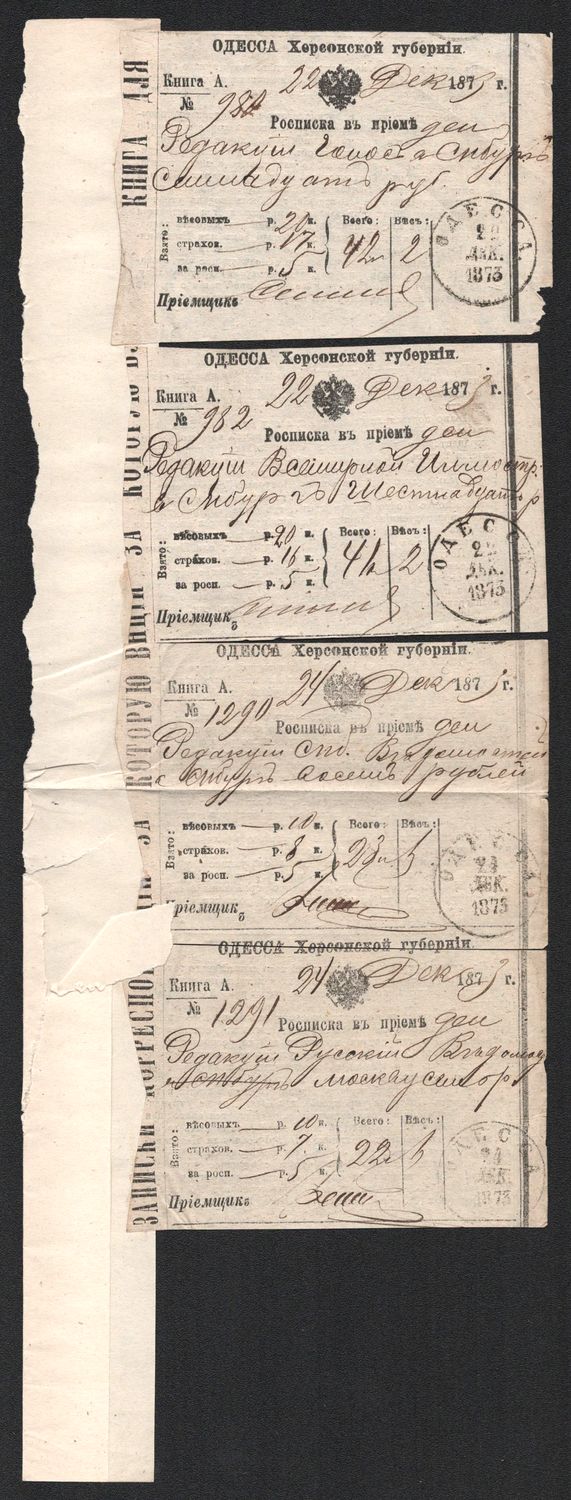 КНИГА ДЛЯ
ЗАПИСКИ КОРРЕСПОН
ЗА КОТОРУЮ
ОДЕССА Херсонской губерніи.
22 Дек 1873 г.
Книга А.
№ 981
Росписка въ пріемѣ ден
Редакціи Голоса СПбургъ
Семнадцать руб.
Взято:
вѣсовыхъ р. 20 к.
страхов. р. 17 к.
за росп. р. 5 к.
Всего: 42
Вѣсъ: 2
Пріемщикъ
ОДЕССА
22
ДЕК.
1873
ОДЕССА Херсонской губерніи.
22 Дек 1873
Книга А.
№ 982
Росписка въ пріемѣ ден
Редакціи Всемирной Иллюстр.
в СПбургъ Шестнадцать р
Взято:
вѣсовыхъ р. 20 к.
страхов. р. 16 к.
за росп. р. 5 к.
Всего: 41
Вѣсъ: 2
Пріемщикъ
ОДЕССА
22
ДЕК.
1873
ОДЕССА Херсонской губерніи.
24 Дек 1873 г.
Книга А.
№ 1290
Росписка въ пріемѣ ден
Редакціи СПб. Вѣдомостей
в СПбургъ восемь рублей
Взято:
вѣсовыхъ р. 10 к.
страхов. р. 8 к.
за росп. р. 5 к.
Всего: 23
Вѣсъ: 1
Пріемщикъ
ОДЕССА
24
ДЕК.
1873
ОДЕССА Херсонской губерніи.
24 Дек 1873 г.
Книга А.
№ 1291
Росписка въ пріемѣ ден
Редакціи Русскій Вѣдомос
в СПбургъ Москву семь р.
Взято:
вѣсовыхъ р. 10 к.
страхов. р. 7 к.
за росп. р. 5 к.
Всего: 22
Вѣсъ: 1
Пріемщикъ
ОДЕССА
24
ДЕК.
1873